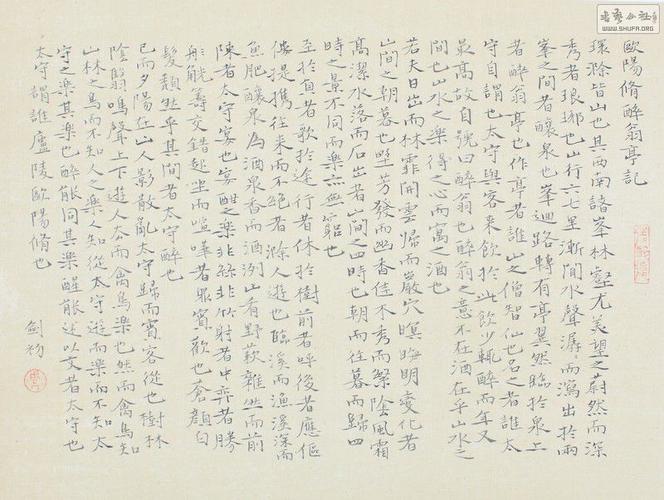 歐陽脩醉翁亭記
環滁皆山也其西南諸峯林壑尤美望之蔚然而深
秀者琅琊也山行六七里漸聞水聲潺而瀉出於兩
峯之間者釀泉也峯迴路轉有亭翼然臨於泉上
者醉翁亭也作亭者誰山之僧智仙也名之者誰太
守自謂也太守與客來飲於此飲少輒醉而年又
最高故自號曰醉翁也醉翁之意不在酒在乎山水之
間也山水之樂得之心而寓之酒也
若夫日出而林霏開雲歸而巖穴暝晦明變化者
山間之朝暮也野芳發而幽香佳木秀而繁陰風霜
高潔水落而石出者山間之四時也朝而往暮而歸四
時之景不同而樂無窮也
至於負者歌於途行者休於樹前者呼後者應傴
僂提攜往來而不絕者滁人遊也臨溪而漁溪深而
魚肥釀泉為酒泉香而酒洌山肴野蔌雜然而前
陳者太守宴也宴酣之樂非絲非竹射者中弈者勝
觥籌交錯起坐而喧嘩者眾賓歡也蒼顏白
髮頹然乎其間者太守醉也
已而夕陽在山人影散亂太守歸而賓客從也樹林
陰翳鳴聲上下遊人去而禽鳥樂也然而禽鳥知
山林之鳥而不知人之樂人知從太守遊而樂而不知太
守之樂其樂也醉能同其樂醒能述以文者太守也
太守謂誰廬陵歐陽脩也
劍
WWW.SHUFA.ORG